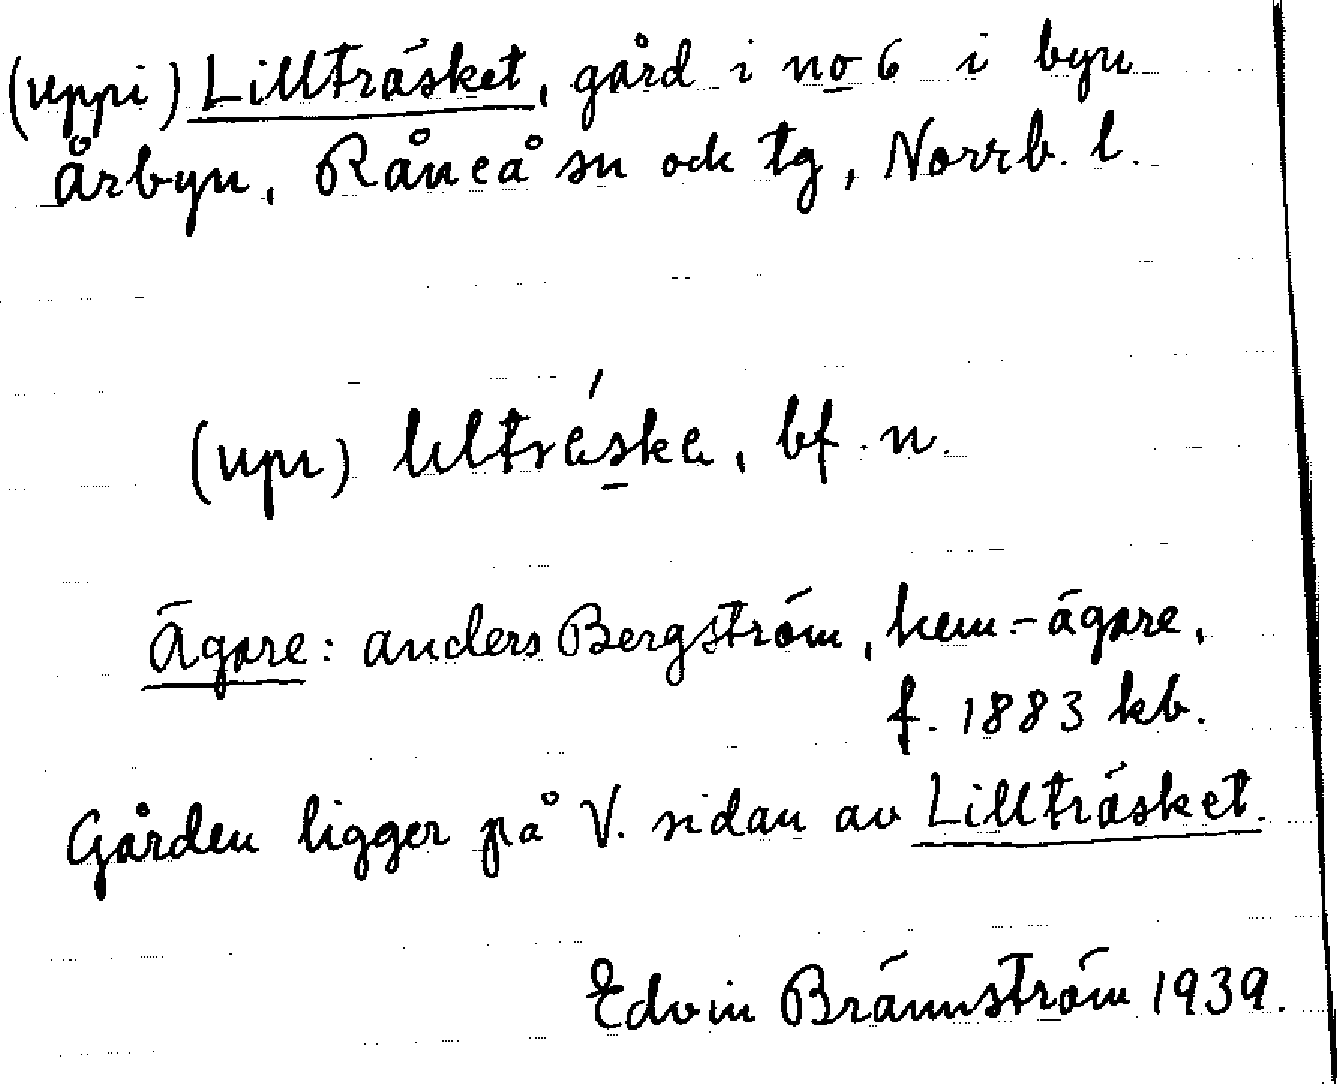 (uppi) Lillträsket, gård i no 6 i byn
Årbyn, Råneå sn ock tg, Norrb. l.
(upı) lıltrǽska, bf. n.
Ägare: Anders Bergström, hem.-ägare,
f. 1883 kb.
Gården ligger på V. sidan av Lillträsket.
Edvin Brännström 1939.